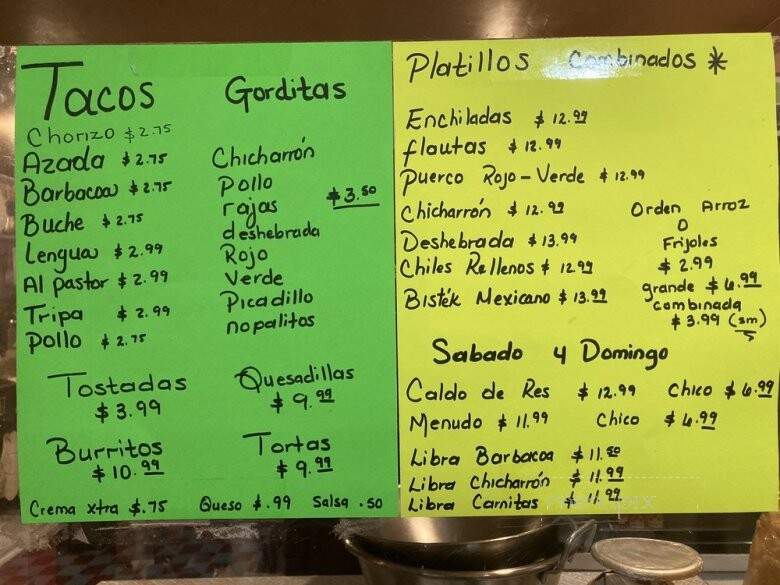 Tacos
Chorizo $2.75
Azada $2.75
Barbacoa $2.75
Buche $2.75
Lengua $2.99
Al pastor $2.99
Tripa $2.99
Pollo $2.75
Gorditas
Chicharrón
Pollo
rajas $3.50
deshebrada
Rojo
Verde
Picadillo
nopalitos
Tostadas
$3.99
Quesadillas
$9.99
Burritos
$10.99
Tortas
$9.99
Crema xtra $.75 Queso $.99 Salsa .50
Platillos Combinados *
Enchiladas $12.99
flautas $12.99
Puerco Rojo-Verde $12.99
Chicharrón $12.99
Deshebrada $13.99
Chiles Rellenos $12.99
Bisték Mexicano $13.99
Orden Arroz
O
Frijoles
$2.99
grande $6.99
combinada
$3.99 (sm)
Sabado y Domingo
Caldo de Res $12.99 Chico $6.99
Menudo $11.99 Chico $6.99
Libra Barbacoa $11.50
Libra Chicharrón $11.99
Libra Carnitas $11.99